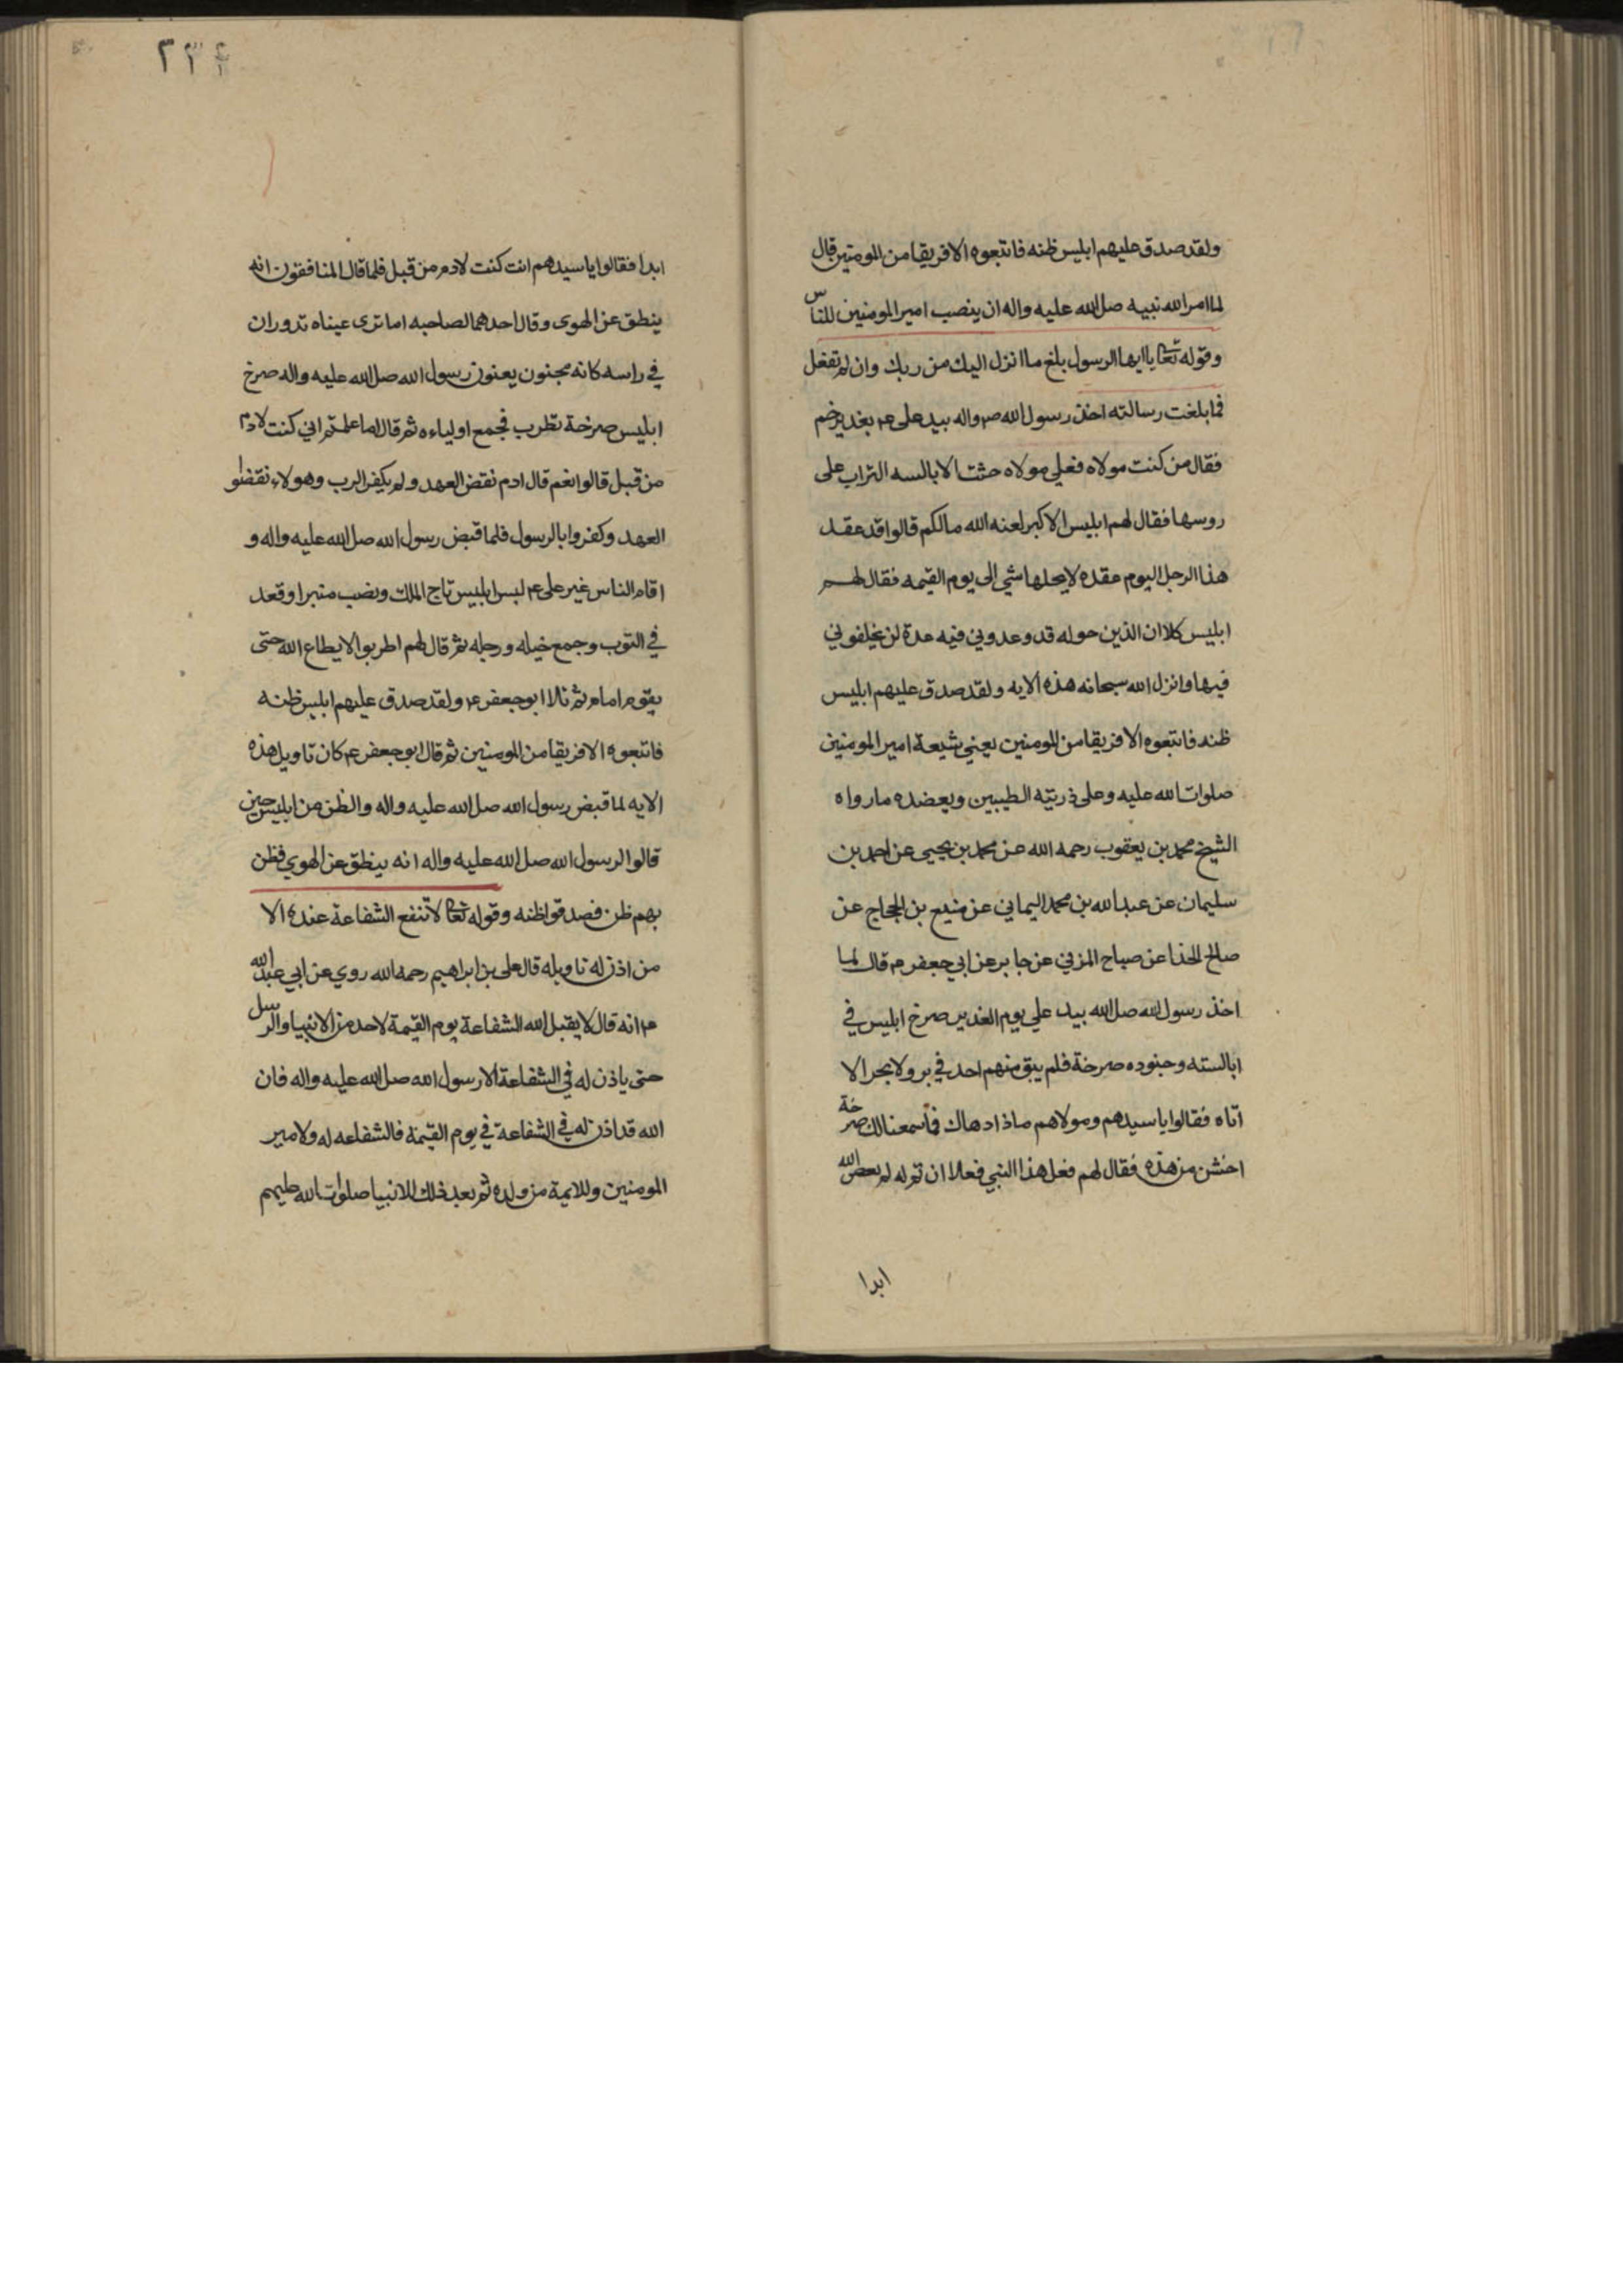 ولقد صدق عليهم ابليس ظنه فاتبعوه الا فريقا من المومنين قال
لما امر الله نبيه صل الله عليه واله ان ينصب امير المومنين للناس
وقوله تعا يا ايها الرسول بلغ ما انزل اليك من ربك وان لم تفعل
فما بلغت رسالته اخذ رسول الله ص واله بيد علي ع م بغدير خم
فقال من كنت مولاه فعلي مولاه حثت الابالسه التراب على
روسها فقال لهم ابليس الاكبر لعنه الله مالكم قالوا قد عقد
هذا الرجل اليوم عقده لا يحلها شي الى يوم القيمه فقال لهم
ابليس كلا ان الذين حوله قد وعدوني فيه عدة لن يخلفوني
فيها وانزل الله سبحانه هذه الايه ولقد صدق عليهم ابليس
ظنه فاتبعوه الا فريقا من المومنين يعني شيعة امير المومنين
صلوات الله عليه وعلى ذريته الطيبين ويعضده مارواه
الشيخ محمد بن يعقوب رحمه الله عن محمد بن يحيى عن احمد بن
سليمان عن عبد الله بن محمد اليماني عن منيع بن الحجاج عن
صالح الحذا عن صباح المزني عن جابر عن ابي جعفر ع م قال لما
اخذ رسول الله صل الله بيد علي يوم الغدير صرخ ابليس في
ابالسته وجنوده صرخة فلم يبق منهم احد في بر ولا بحر الا
اتاه فقالوا يا سيدهم ومولاهم ماذا دهاك فما سمعنا لك صرخة
اخشن من هذه فقال لهم فعل هذا النبي فعلا ان تم له لم يعص الله
ابدا
٢٣٤
ابدا فقالوا يا سيدهم انت كنت لادم من قبل فلما قال المنافقون انه
ينطق عن الهوى وقال احدهما لصاحبه اما ترى عيناه تدوران
في راسه كانه مجنون يعنون رسول الله صل الله عليه واله صرخ
ابليس صرخة تطرب فجمع اولياءه ثم قال اما علمتم اني كنت لادم
من قبل قالوا نعم قال ادم نقض العهد ولم يكفر الرب وهولاء نقضوا
العهد وكفروا بالرسول فلما قبض رسول الله صل الله عليه واله و
اقام الناس غير علي ع م لبس ابليس تاج الملك ونصب منبرا وقعد
في التوب وجمع خيله ورجله ثم قال لهم اطربوا لا يطاع الله حتى
يقوم امام ثم تلا ابو جعفر ع م ولقد صدق عليهم ابليس ظنه
فاتبعوه الا فريقا من المومنين ثم قال ابو جعفر ع م كان تاويل هذه
الايه لما قبض رسول الله صل الله عليه واله والظن من ابليس حين
قالوا لرسول الله صل الله عليه واله انه ينطق عن الهوي فظن
بهم ظن فصدقوا ظنه وقوله تعا لا تنفع الشفاعة عنده الا
من اذن له تاويله قال علي بن ابراهيم رحمه الله روي عن ابي عبد الله
ع م انه قال لا يقبل الله الشفاعة يوم القيمة لاحد من الانبيا والرسل
حتى ياذن له في الشفاعة الا رسول الله صل الله عليه واله فان
الله قد اذن له في الشفاعة في يوم القيمة فالشفاعه له ولامير
المومنين وللايمة من ولده ثم بعد ذلك للانبيا صلوات الله عليهم